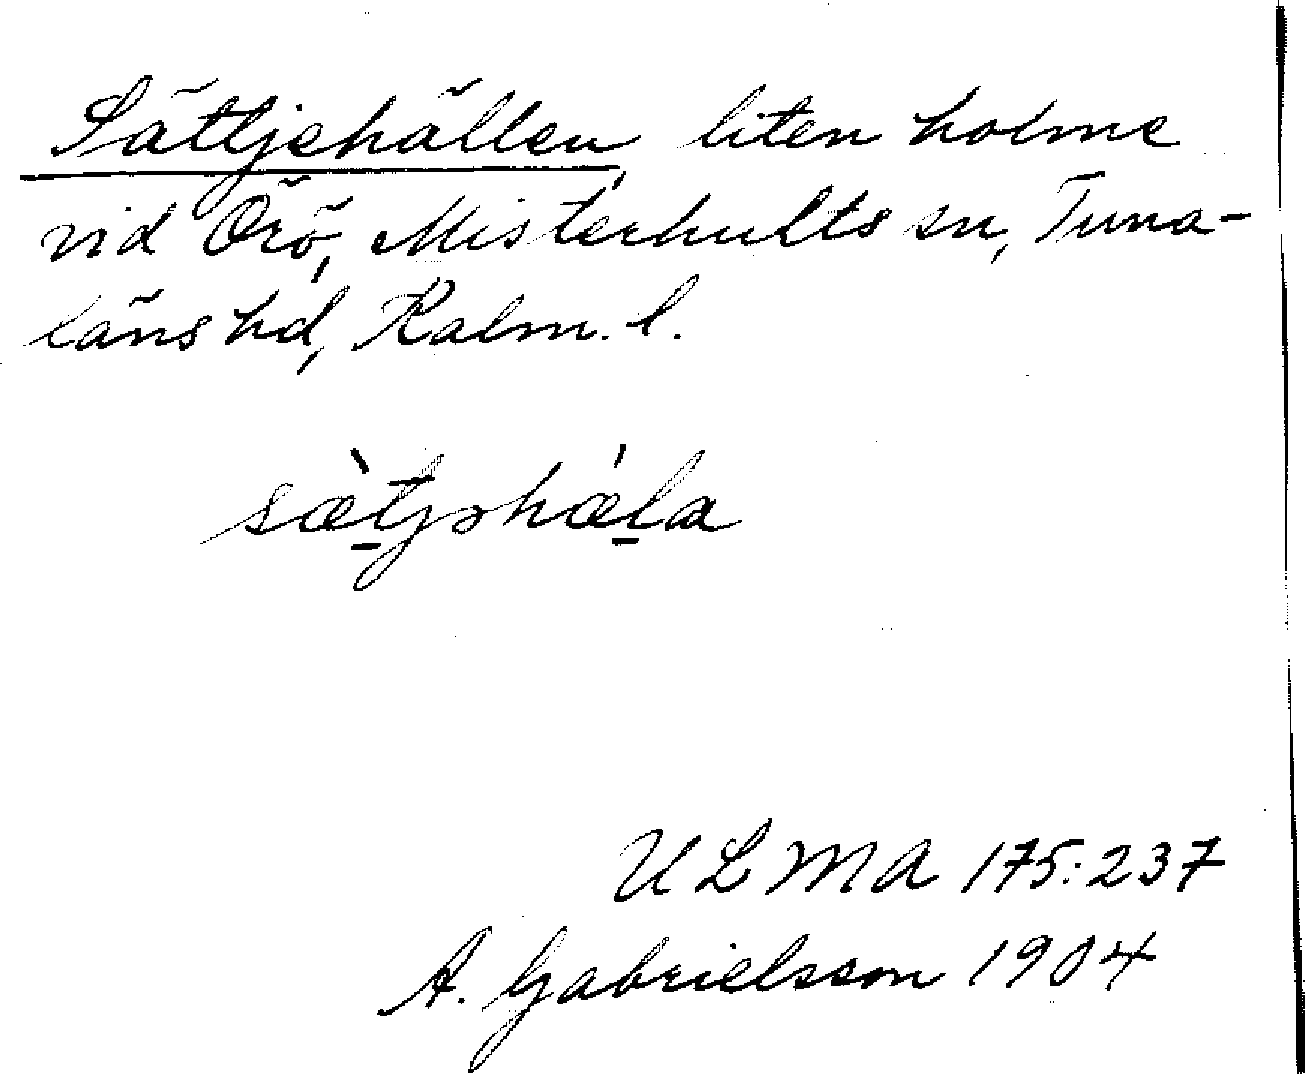 Sättjehällen, liten holme
vid Örö, Misterhults sn, Tuna-
läns hd, Kalm. l.
sæ̀tjəhǽla
ULMA 175:237
A. Gabrielsson 1904